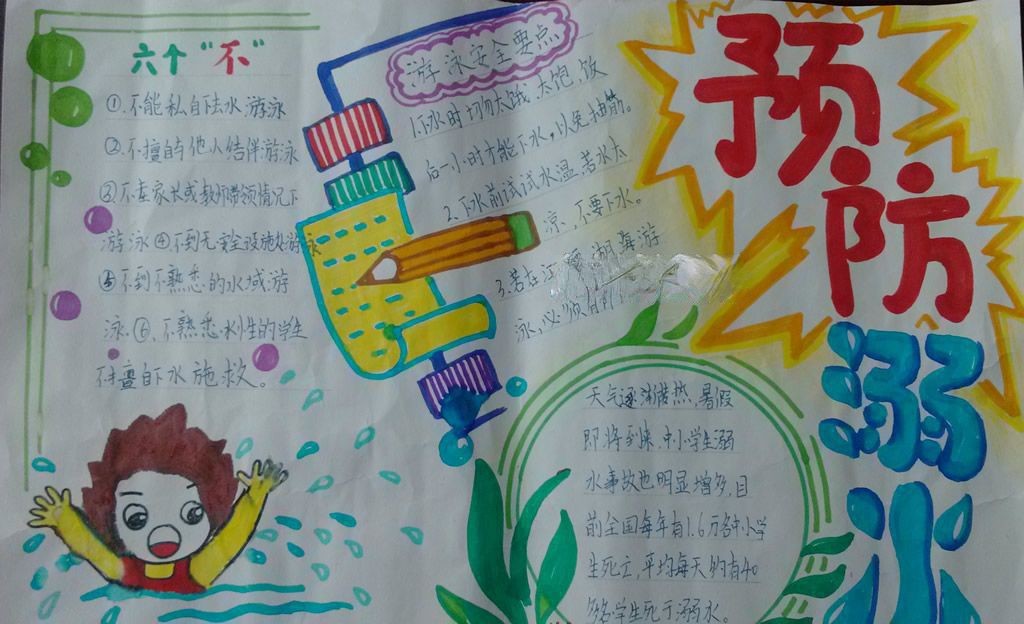 六个“不”
①.不能私自下水游泳
②.不擅自与他人结伴游泳
③不在家长或教师带领情况下
游泳④不到无安全设施处游泳
⑤不到不熟悉的水域游
泳.⑥.不熟悉水性的学生
不擅自下水施救。
游泳安全要点
1.下水时切勿太饿、太饱,饭
后一小时才能下水,以免抽筋。
2.下水前试试水温,若水太
凉,不要下水。
3.若在江 湖海游
泳,必须有
预防
溺水
天气逐渐炎热,暑假
即将到来,中小学生溺
水事故也明显增多,目
前全国每年有1.6万名中小学
生死亡,平均每天约有40
多名学生死于溺水。